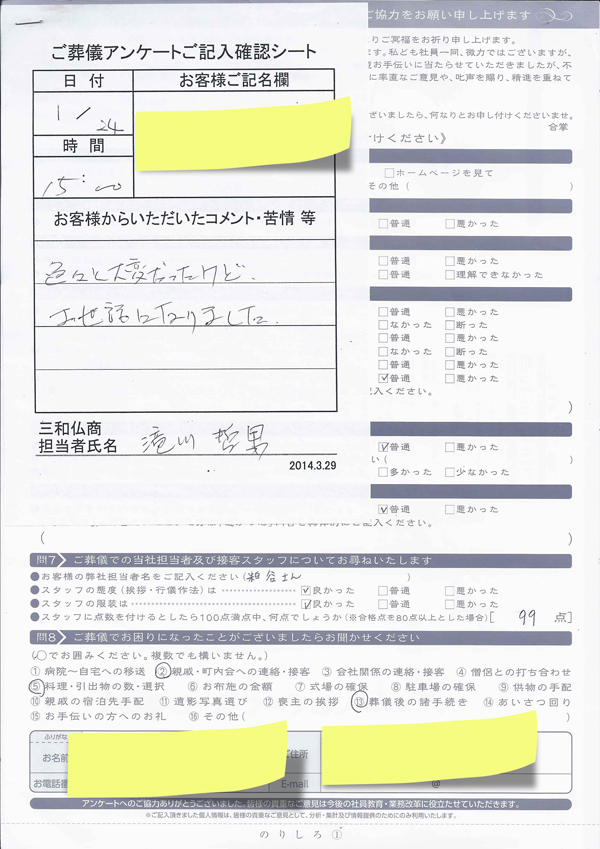 ご協力をお願い申し上げます
ご葬儀アンケートご記入確認シート
日付
お客様ご記名欄
1/24
時間
15:00
お客様からいただいたコメント・苦情 等
色々と大変だったけど、
お世話になりました。
三和仏商
担当者氏名
滝川 哲男
2014.3.29
りご冥福をお祈り申し上げます。
す。私ども社員一同、微力ではございますが、
お手伝いに当たらせていただきましたが、不
に率直なご意見や、叱声を賜り、精進を重ねて
ざいましたら、何なりとお申し付けくださいませ。
合掌
付けください》
□ホームページを見て
その他（ ）
□普通 □悪かった
□普通 □悪かった
□普通 □理解できなかった
□普通 □悪かった
□なかった □断った
□普通 □悪かった
□なかった □断った
□普通 □悪かった
☑普通 □悪かった
記入ください。
）
☑普通 □悪かった
い（ ）
□多かった □少なかった
☑普通 □悪かった
ご記入ください。
（ ）
問7 ご葬儀での当社担当者及び接客スタッフについてお尋ねいたします
●お客様の弊社担当者名をご記入ください（粕谷さん ）
●スタッフの態度（挨拶・行儀作法）は ☑良かった □普通 □悪かった
●スタッフの服装は ☑良かった □普通 □悪かった
●スタッフに点数を付けるとしたら100点満点中、何点でしょうか（※合格点を80点以上とした場合）［ 99 点］
問8 ご葬儀でお困りになったことがございましたらお聞かせください
（○でお囲みください。複数でも構いません。）
① 病院〜自宅への移送 ② 親戚・町内会への連絡・接客 ③ 会社関係の連絡・接客 ④ 僧侶との打ち合わせ
⑤ 料理・引出物の数・選択 ⑥ お布施の金額 ⑦ 式場の確保 ⑧ 駐車場の確保 ⑨ 供物の手配
⑩ 親戚の宿泊先手配 ⑪ 遺影写真選び ⑫ 喪主の挨拶 ⑬ 葬儀後の諸手続き ⑭ あいさつ回り
⑮ お手伝いの方へのお礼 ⑯ その他（ ）
ふりがな
お名前
ご住所
お電話番
E-mail
@
アンケートへのご協力ありがとうございました。皆様の貴重なご意見は今後の社員教育・業務改革に役立たせていただきます。
※ご記入頂きました個人情報は、皆様の貴重なご意見として、分析・集計及び情報提供のためにのみ利用いたします。
のりしろ①